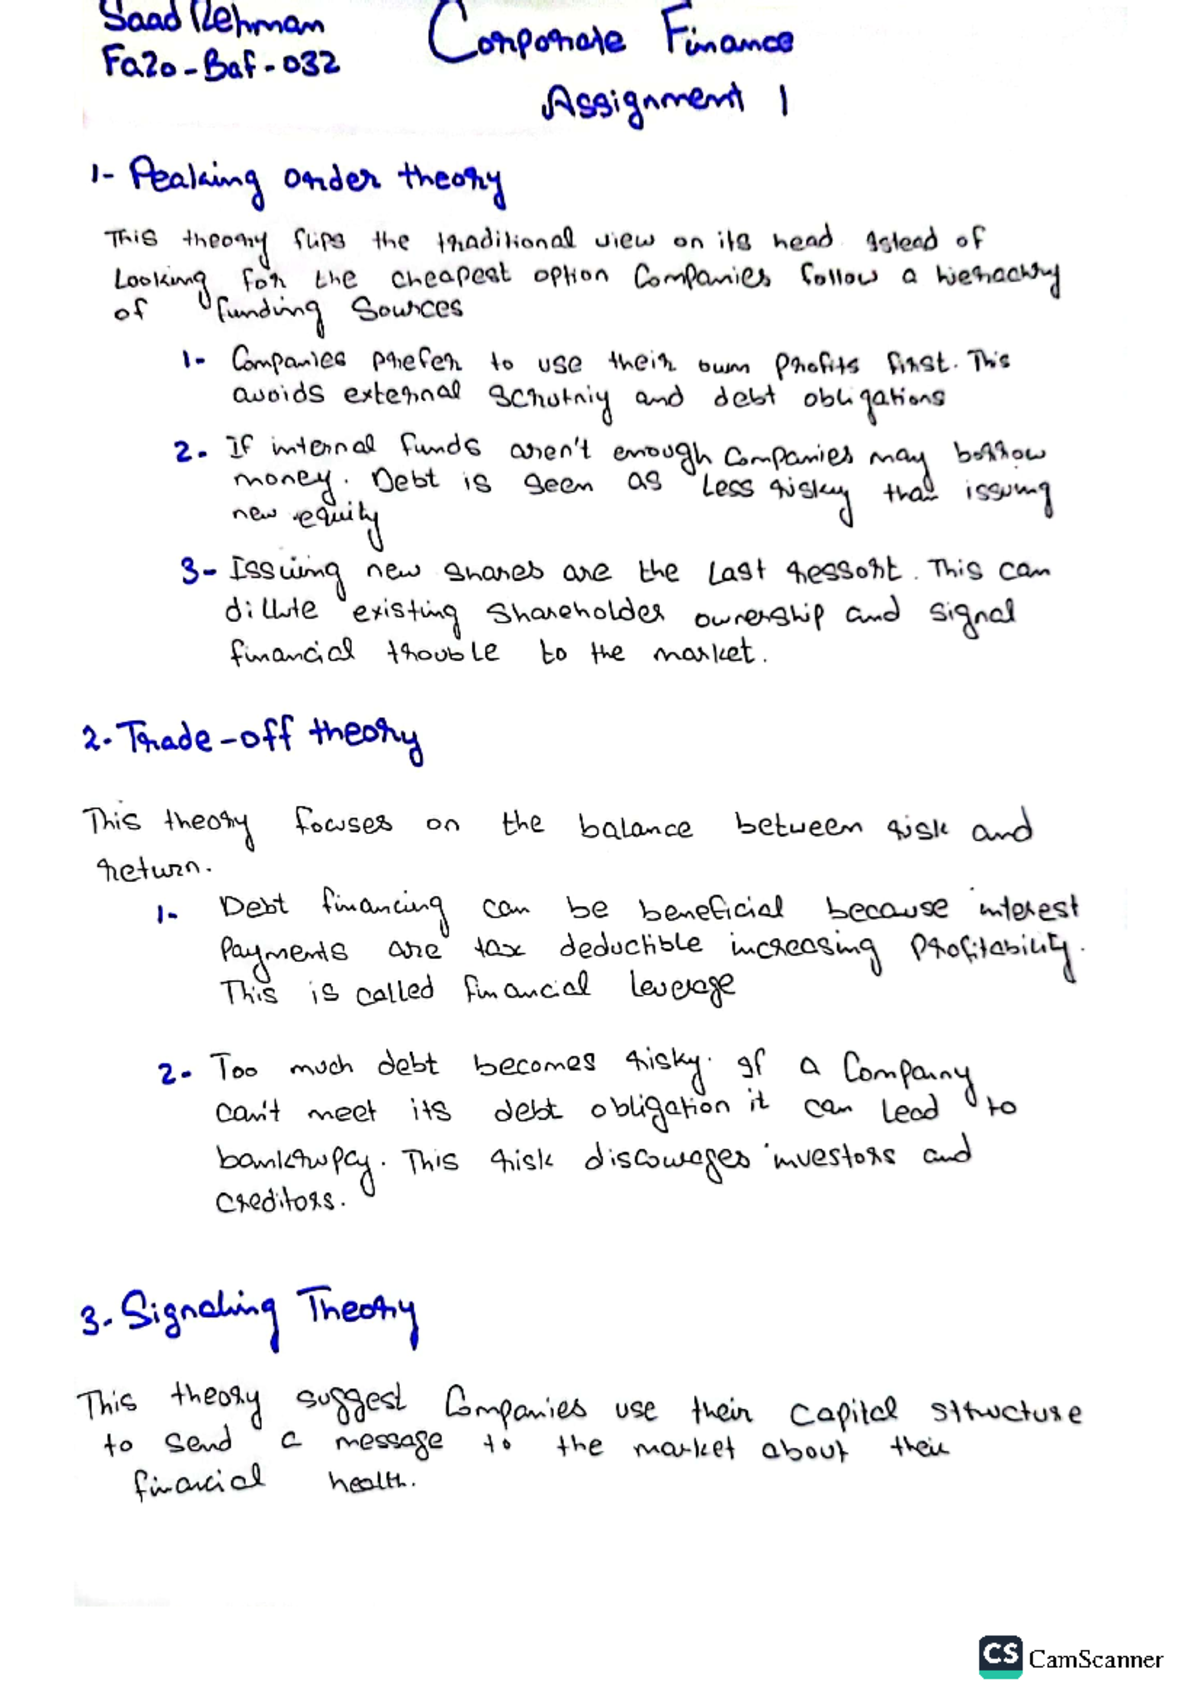 Saad Rehman
Fa20-Baf-032
Corporate Finance
Assignment 1
1- Peaking order theory
This theory flips the traditional view on its head Istead of
Looking for the cheapest option Companies follow a hierachry
of funding Sources
1- Companies prefer to use their own profits first. This
avoids external Schrutniy and debt obligations
2- If internal funds aren't enough Companies may borrow
money. Debt is seen as less risky than issuing
new equity
3- Issuing new shares are the last ressort. This can
dillute existing Shareholder ownership and signal
financial trouble to the market.
2. Trade-off theory
This theory focuses on the balance between risk and
return.
1- Debt financing can be beneficial because interest
payments are tax deductible increasing profitability.
This is called financial leverage
2- Too much debt becomes risky. If a Company
can't meet its debt obligation it can lead to
bankrupcy. This risk discourages investors and
creditors.
3. Signaling Theory
This theory suggest Companies use their capital structure
to send a message to the market about their
financial health.
CS CamScanner